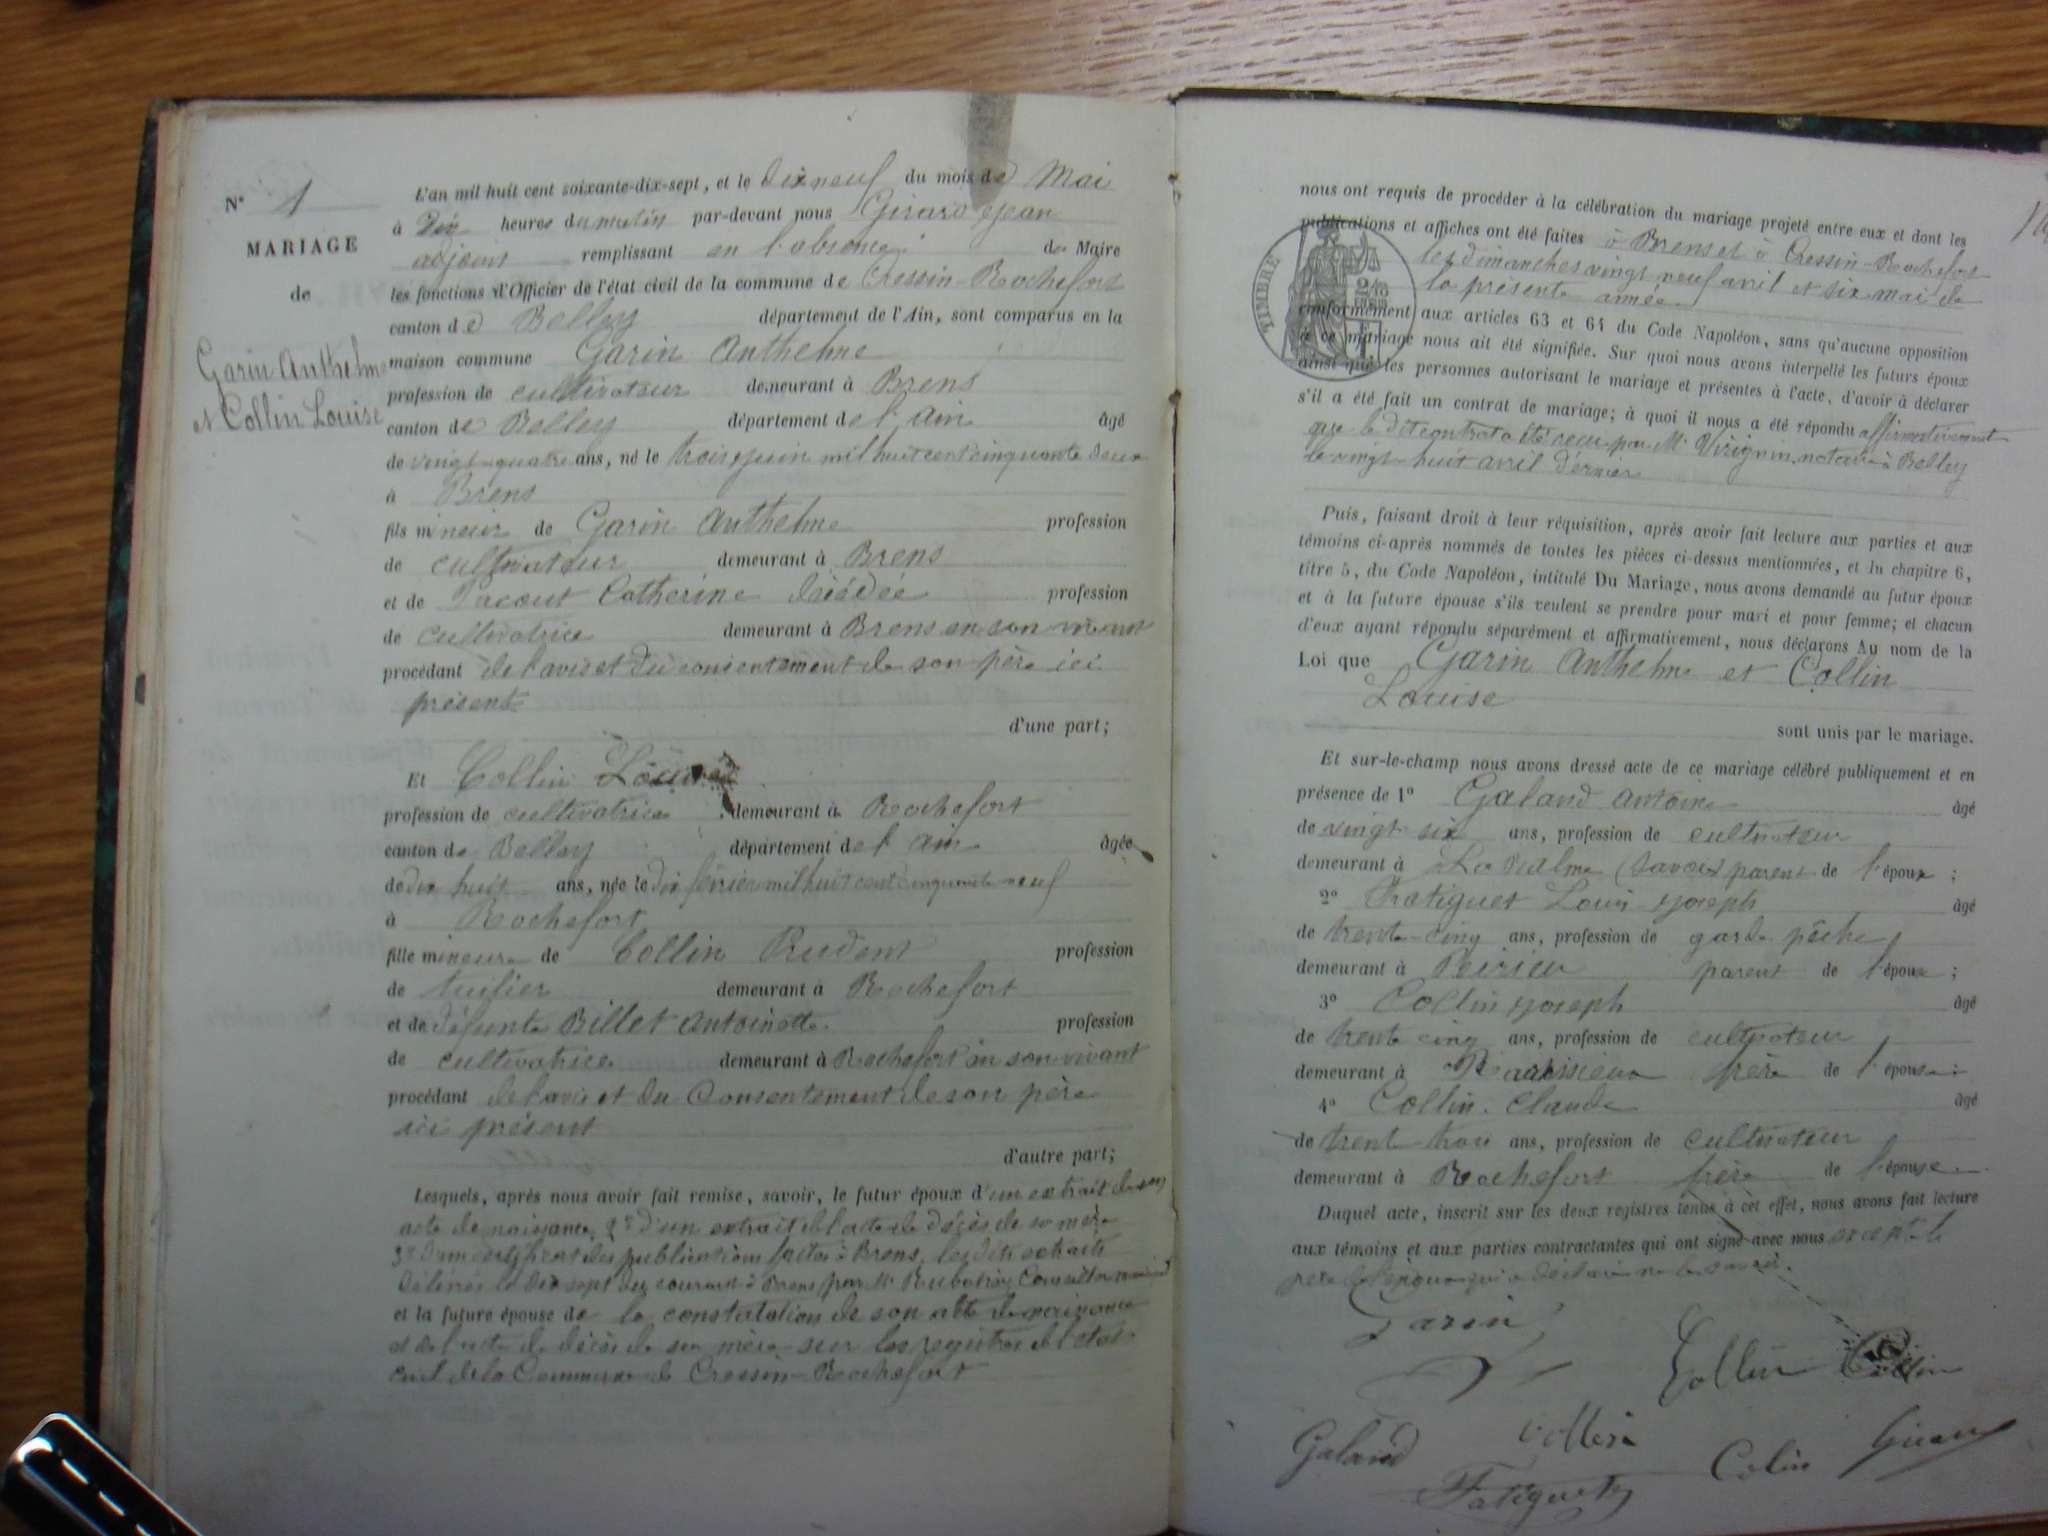 N° 1
MARIAGE
de
Garin Anthelme
et Collin Louise
L'an mil huit cent soixante-dix-sept, et le dix neuf du mois de Mai
à Dix heures du matin par-devant nous Girard Jean
adjoint remplissant en l'absence du Maire
les fonctions d'Officier de l'état civil de la commune de Cressin-Rochefort
canton de Belley département de l'Ain, sont comparus en la
maison commune Garin Anthelme
profession de cultivateur demeurant à Brens
canton de Belley département de l'Ain âgé
de vingt-quatre ans, né le trois juin mil huit cent cinquante deux
à Brens
fils mineur de Garin Anthelme profession
de cultivateur demeurant à Brens
et de Pacout Catherine décédée profession
de cultivatrice demeurant à Brens en son vivant
procédant de l'avis et du consentement de son père ici
présent
d'une part;
Et Collin Louise
profession de cultivatrice demeurant à Rochefort
canton de Belley département de l'Ain âgée
de dix huit ans, née le dix février mil huit cent cinquante neuf
à Rochefort
fille mineure de Collin Prudent profession
de tuilier demeurant à Rochefort
et de défunte Billet Antoinette profession
de cultivatrice demeurant à Rochefort en son vivant
procédant de l'avis et du Consentement de son père
ici présent
d'autre part;
Lesquels, après nous avoir fait remise, savoir, le futur époux d'un extrait de son
acte de naissance, 2° d'un extrait de l'acte de décès de sa mère
3° d'un certificat des publications faites à Brens, les dits extraits
délivrés le dix sept du courant à Brens par Mr Conseiller municipal
et la future épouse de la constatation de son acte de naissance
et de l'acte de décès de sa mère sur les registres de l'état
civil de la Commune de Cressin-Rochefort
nous ont requis de procéder à la célébration du mariage projeté entre eux et dont les
publications et affiches ont été faites à Brens et à Cressin-Rochefort
les dimanches vingt neuf avril et six mai de
la présente année
TIMBRE
conformément aux articles 63 et 64 du Code Napoléon, sans qu'aucune opposition
à ce mariage nous ait été signifiée. Sur quoi nous avons interpellé les futurs époux
ainsi que les personnes autorisant le mariage et présentes à l'acte, d'avoir à déclarer
s'il a été fait un contrat de mariage; à quoi il nous a été répondu affirmativement
que le dit contrat a été reçu par Me Virignin notaire à Belley
le vingt-huit avril dernier
Puis, faisant droit à leur réquisition, après avoir fait lecture aux parties et aux
témoins ci-après nommés de toutes les pièces ci-dessus mentionnées, et lu chapitre 6,
titre 5, du Code Napoléon, intitulé Du Mariage, nous avons demandé au futur époux
et à la future épouse s'ils veulent se prendre pour mari et pour femme; et chacun
d'eux ayant répondu séparément et affirmativement, nous déclarons Au nom de la
Loi que Garin Anthelme et Collin
Louise
sont unis par le mariage.
Et sur-le-champ nous avons dressé acte de ce mariage célébré publiquement et en
présence de 1° Galand Antoine âgé
de vingt six ans, profession de cultivateur
demeurant à La Balme (Savoie) parent de l'époux;
2° Fatiguet Louis Joseph âgé
de trente-cinq ans, profession de garde pêche
demeurant à Peirieu parent de l'époux;
3° Collin Joseph âgé
de trente cinq ans, profession de cultivateur
demeurant à frère de l'épouse;
4° Collin Claude âgé
de trente-trois ans, profession de cultivateur
demeurant à Rochefort frère de l'épouse
Duquel acte, inscrit sur les deux registres tenus à cet effet, nous avons fait lecture
aux témoins et aux parties contractantes qui ont signé avec nous excepté le
père de l'époux qui a déclaré ne le savoir.
Garin
Collin
Collin
Galand
Collin
Colin
Girard
Fatiguet